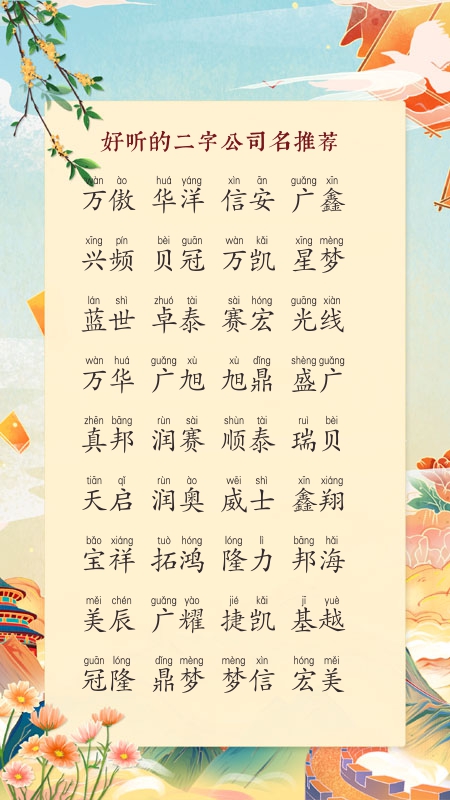 好听的二字公司名推荐
wàn ào huá yáng xìn ān guǎng xīn
万傲 华洋 信安 广鑫
xīng pín bèi guān wàn kǎi xīng mèng
兴频 贝冠 万凯 星梦
lán shì zhuó tài sài hóng guāng xiàn
蓝世 卓泰 赛宏 光线
wàn huá guǎng xù xù dǐng shèng guǎng
万华 广旭 旭鼎 盛广
zhēn bāng rùn sài shùn tài ruì bèi
真邦 润赛 顺泰 瑞贝
tiān qǐ rùn ào wēi shì xīn xiáng
天启 润奥 威士 鑫翔
bǎo xiáng tuò hóng lóng lì bāng hǎi
宝祥 拓鸿 隆力 邦海
měi chén guǎng yào jié kǎi jī yuè
美辰 广耀 捷凯 基越
guān lóng dǐng mèng mèng xìn hóng měi
冠隆 鼎梦 梦信 宏美